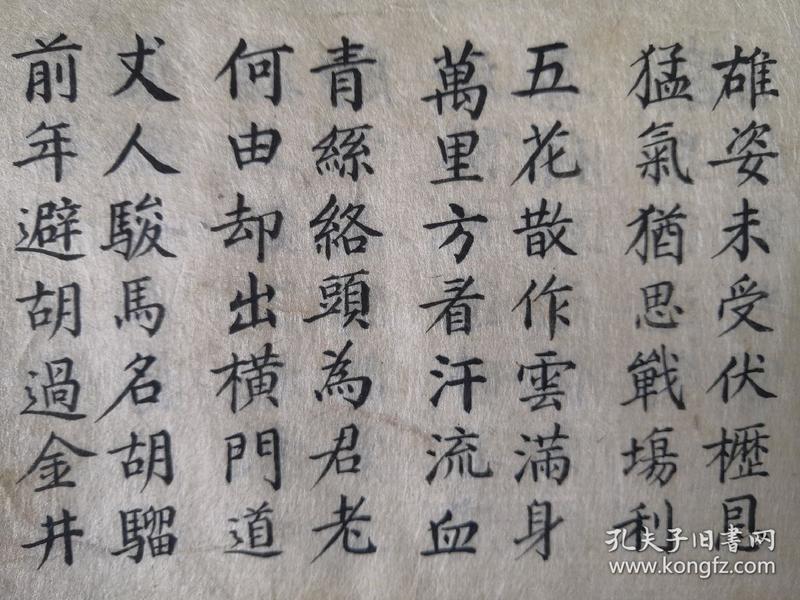 雄姿未受伏櫪恩
猛氣猶思戰塲利
五花散作雲滿身
萬里方看汗流血
青絲絡頭為君老
何由却出橫門道
丈人駿馬名胡騮
前年避胡過金井
孔夫子旧书网
www.kongfz.com